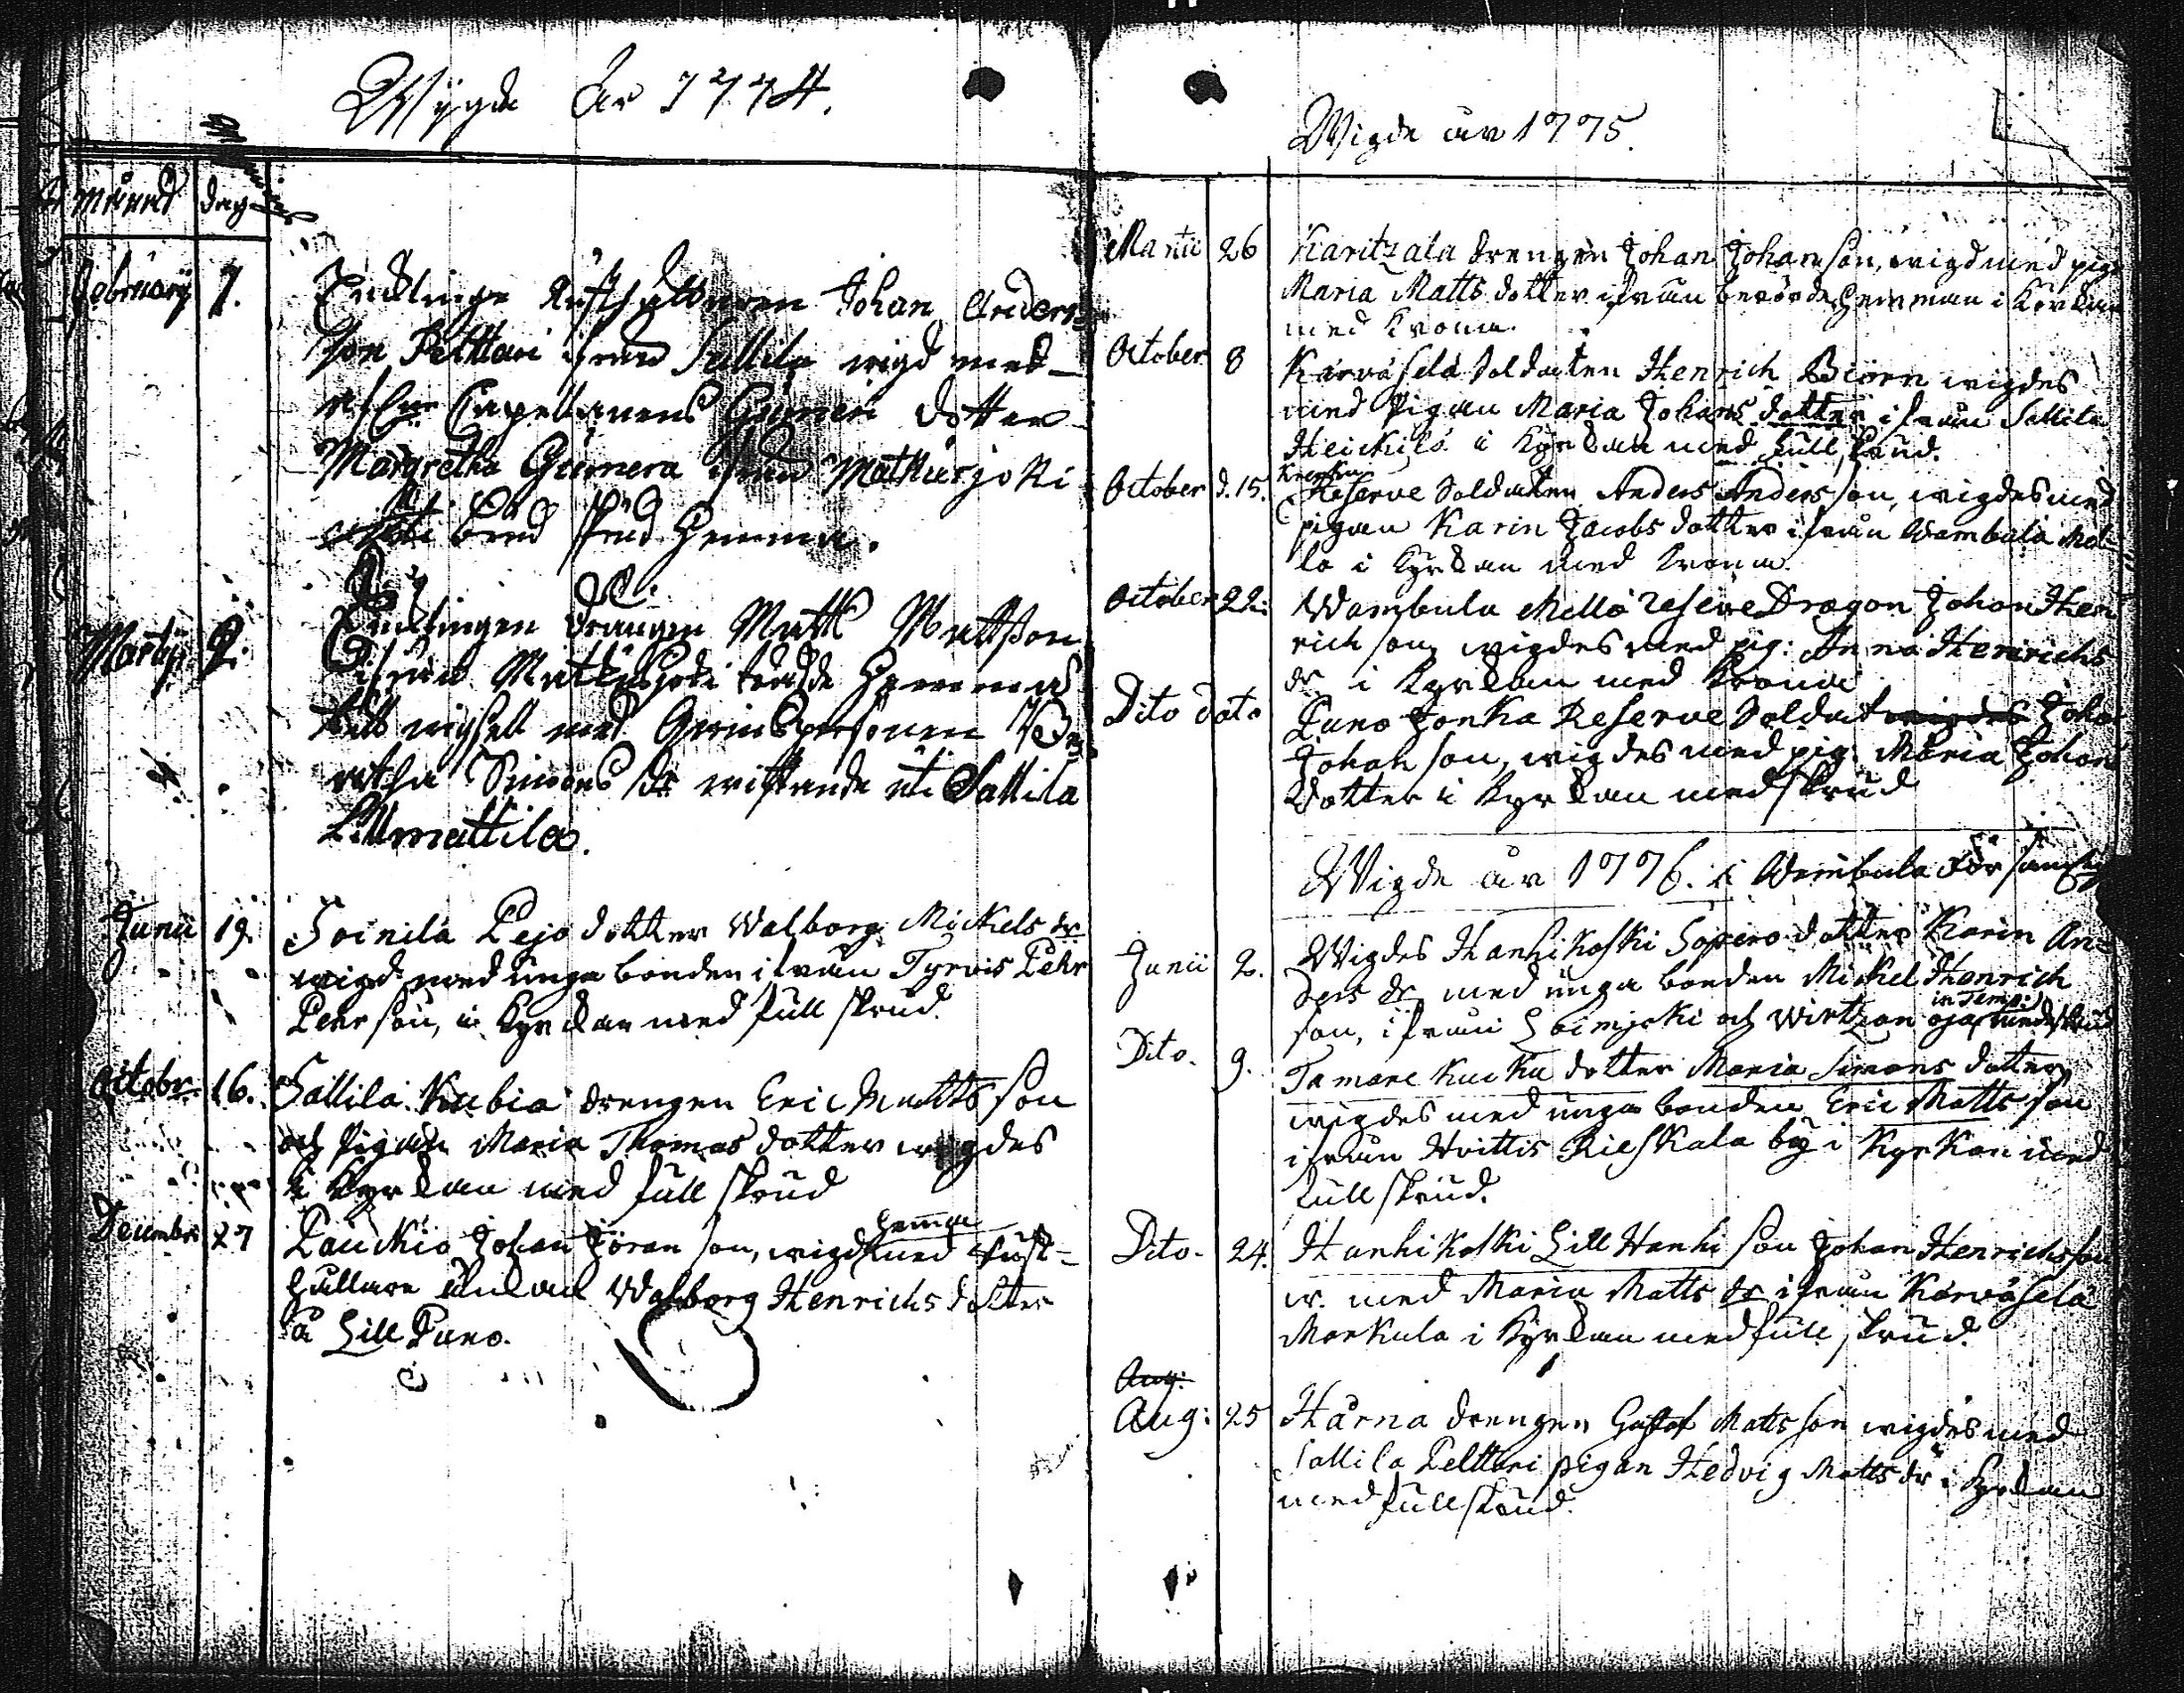 Wijgde År 1774.
månad dag
February 7. Enklinge Rusthållaren Johan Anders-
son Pelttari ifrån Sallila wigd med
Capellanens Gumeri dotter
Margretha Gumera ifrån Matkusjoki
hemma.
Martij 2. Enklingen drängen Matts Mattsson
ifrån Matkusjoki hemma
med Qwinspersonen
Simons dr wistande uti Sallila
Lillmattila.
Junii 19. Soinila Pejo dotter Walborg Mickels dr
wigd med unga bonden ifrån Tyrvis Pehr
Pehrson, i Kyrckan med full skrud.
Octobr. 16. Sallila Kubia drengen Eric Matts son
och Pigan Maria Thomas dotter wigdes
i Kyrckan med full skrud
Decembr 27 Pauckio Johan Jöran son, wigd hemma med Rust-
hållare Enckan Walborg Henrichs dotter
på Lill Puno.
Wigde åar 1775.
Martii 26 Karitzala drengen Johan Johanson, wigd med pig.
Maria Matts dotter ifrån i Körckan
med Krona.
October 8 Karvasela Soldaten Henrich Biörn wigdes
med Pigan Maria Johans dotter ifrån Sallila
Heickilä i Kyrckan med full skrud.
October d. 15. Reserve Soldaten Anders Andersson, wigdes med
pigan Karin Jacobs dotter ifrån Wambula Mel-
lo i Kyrckan med Krona.
October 22. Wambula Mello reserve Dragon Johan Hen
rich son wigdes med pig: Anna Henrichs
dr i Kyrckan med Krona
Dito dato Puno Jonka Reserve Soldat wigdes Johan
Johanson, wigdes med pig. Maria Johans
dotter i Kyrckan med skrud
Wigde åar 1776. i Wambula Församling
Junii 2. Wigdes Hanhikoski Sopero dotter Karin An-
ders dr med unga bonden Mickel Henrich
son, ifrån Loimjoki och Wirtzan oja in Temp: med skrud
Dito. 9. Tamare Kucku dotter Maria Simons dotter
wigdes med unga bonden Eric Matts son
ifrån Hvittis Rieskala by i Kyrkan med
full skrud.
Dito. 24. Hanhikoski Lill Hanhi son Johan Henrichsson
w. med Maria Matts dr ifrån Karvasela
Markula i Kyrckan med full skrud.
Aug:
Aug: 25 Harna drengen Gustaf Matts son wigdes med
Sallila Pelttari pigan Hedvig Matts dr i Kyrckan
med full skrud.